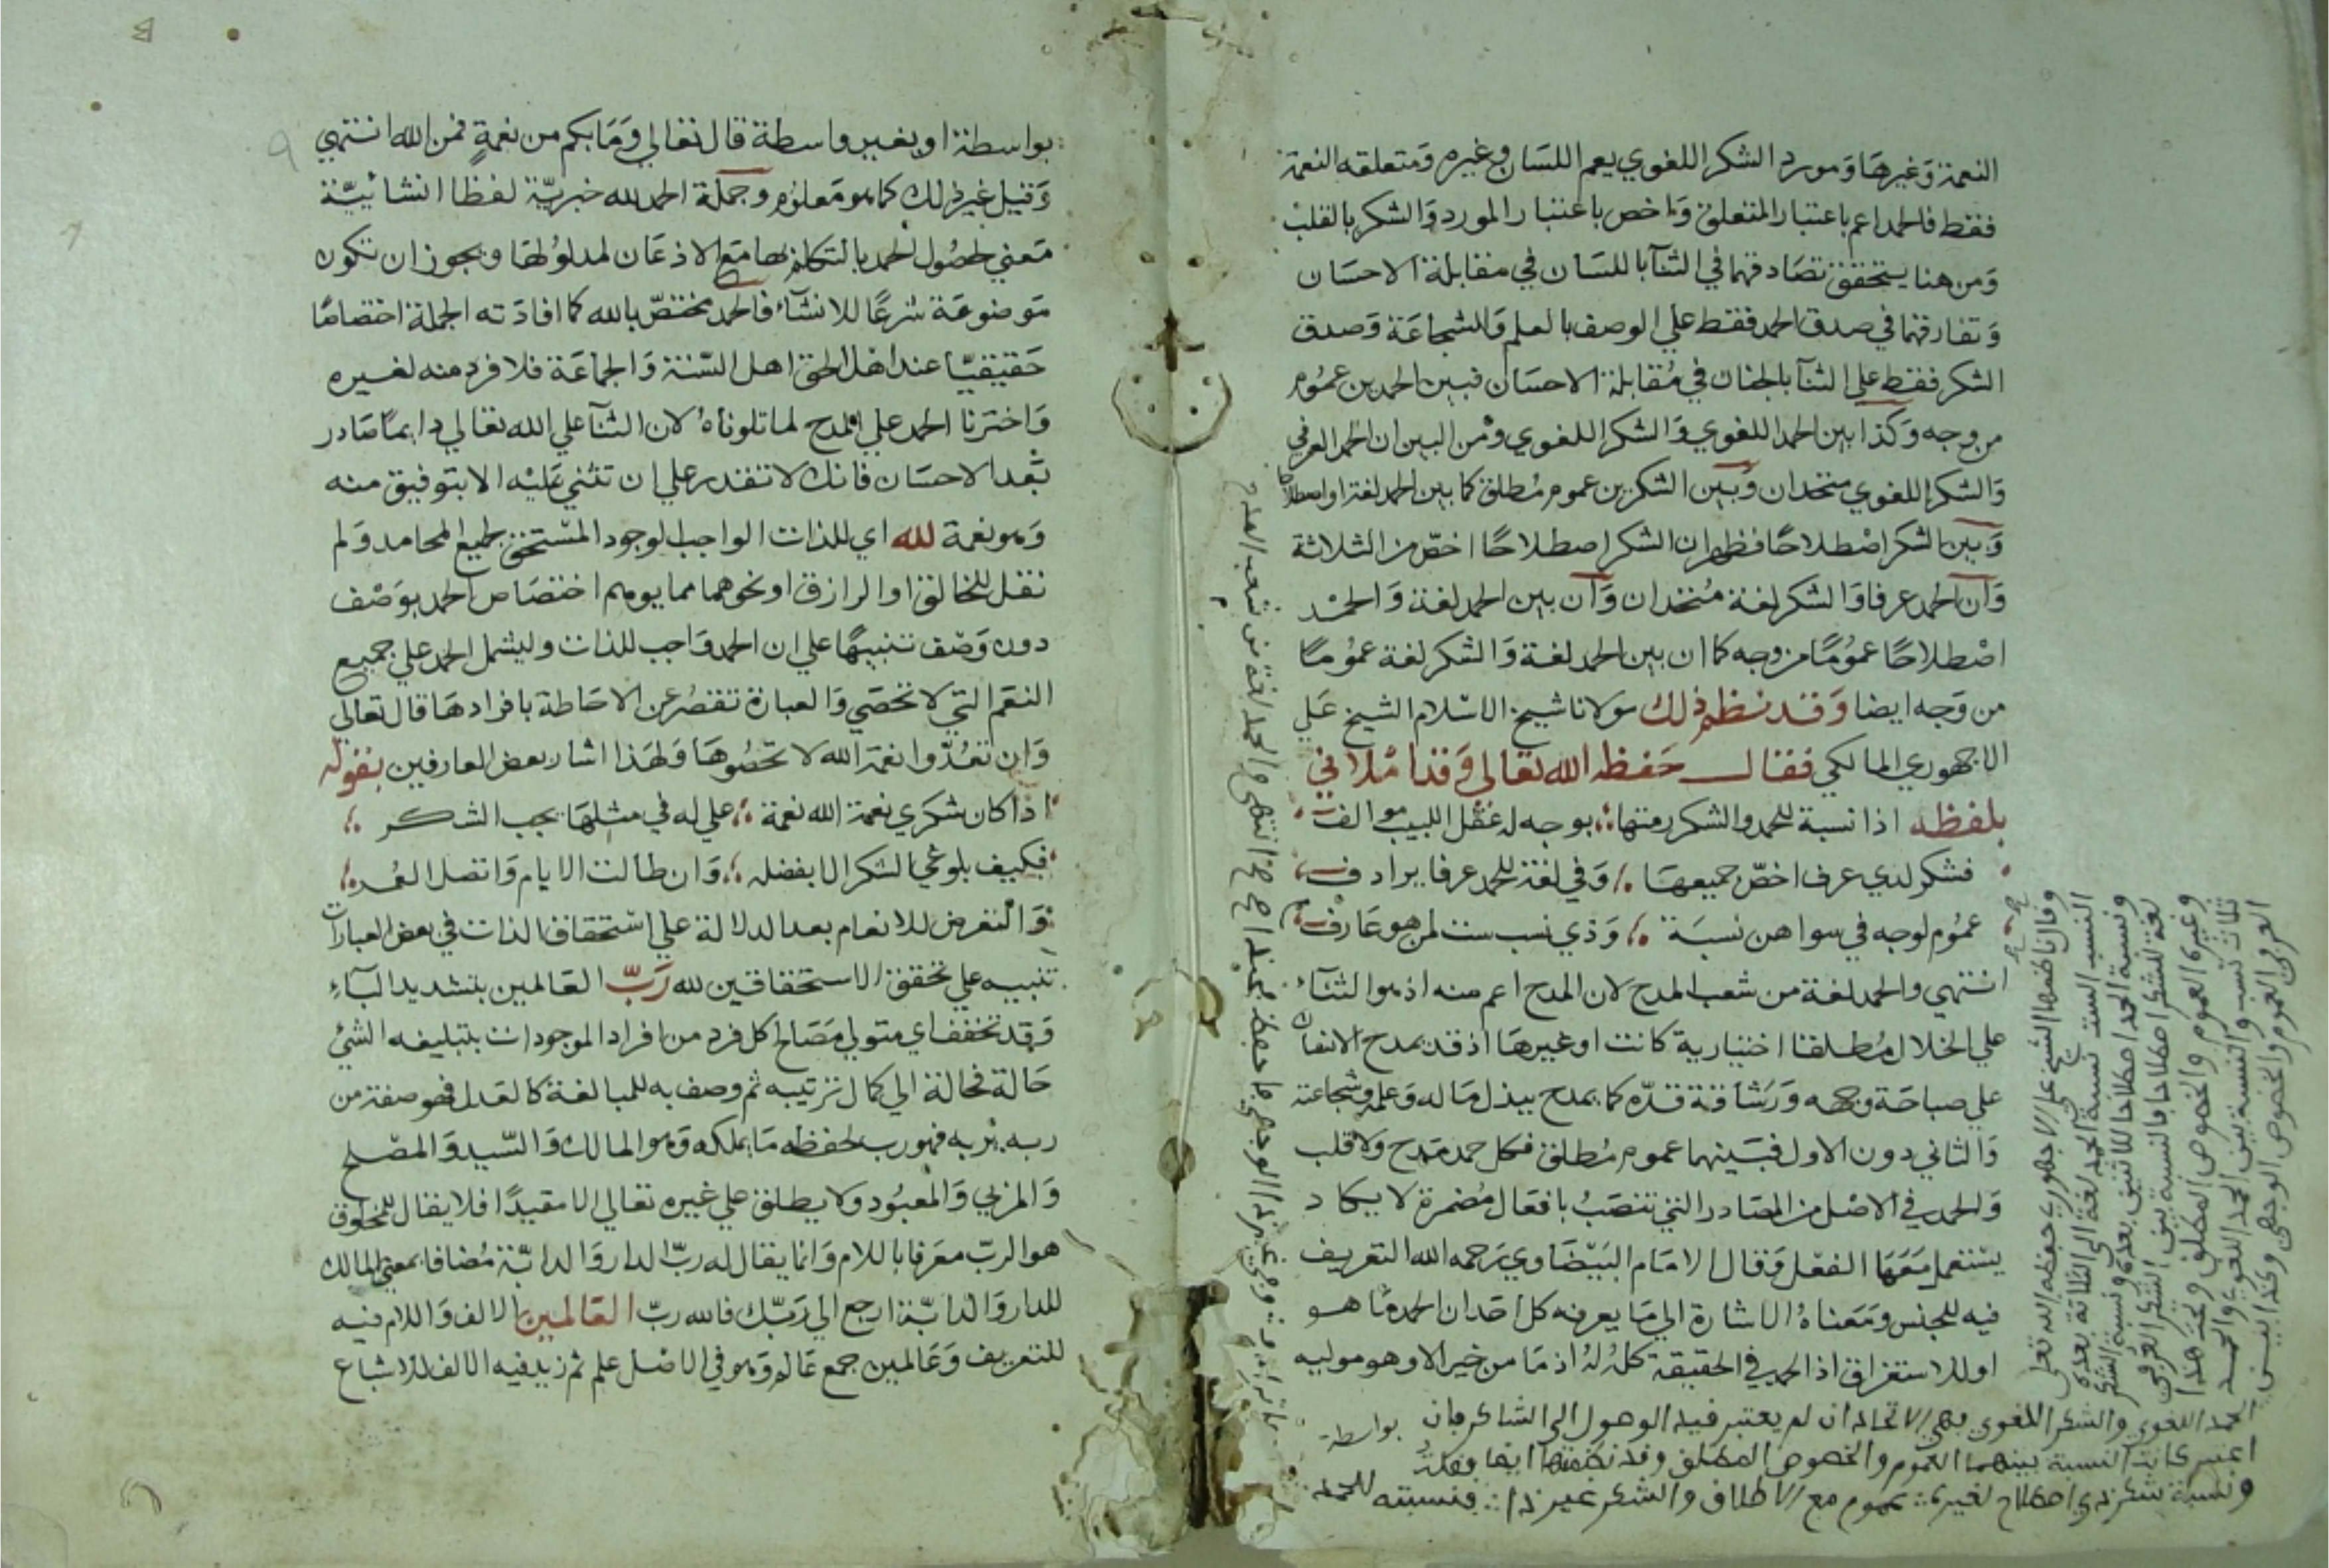 النعمة وَغيرهَا وَمورد الشكر اللغوي يعم اللسَان وغيره وَمتعلقه النعمة
فقط فالحمد اعم باعتبار المتعلق وَاخص باعتبار المورد وَالشكر بالقلب
وَمن هنا يتحقق تصَادقهما في الثنآ باللسَان في مقابلة الاحسَان
وَتفارقهما في صدق الحمد فقط علي الوصف بالعلم وَالشجاعَة وَصدق
الشكر فقط علي الثنآ بالجنان في مُقابلة الاحسَان فبين الحمدين عمُوم
من وجه وَكذا بين الحمد اللغوي وَالشكر اللغوي وَمن البين ان الحمد العرفي
وَالشكر اللغوي متحدان وَبَين الشكرين عموم مُطلق كما بين الحمد لغة او اصطلاحا
وَبين الشكر اصْطلاحًا فظهر ان الشكر اصطلاحًا اخصّ من الثلاثة
وَان الحمد عرفا وَالشكر لغة مُتحدان وَان بين الحمد لغة وَالحمْد
اصْطلاحًا عمُومًا من وجه كما ان بين الحمد لغة وَالشكر لغة عمُومًا
من وَجه ايضا وَقد نظم ذلك مولانا شيخ الاسْلام الشيخ عَلي
الاجهوري المالكي فقال حَفظه الله تعَالي وَقد امْلاني
بلفظه اذا نسبة للحمد والشكر رمتها بوجه له عَقْل اللبيب موالف
فشكر لدي عرف اخصّ جميعهَا وَفي لغة للحمد عرفا يرادف
عمُوم لوجه في سواهن نسبَة وَذي نسب ست لمن هو عَارف
انتهي والحمد لغة من شعب المدح لان المدح اعم منه اذ هو الثنَآء
علي الخلال مُطلقا اختيارية كانت او غيرهَا اذ قد يمدح الانسان
علي صباحَة وجهه وَرَشَاقة قدّه كما يمدح ببذل مَاله وَعلمه وشجاعته
وَالثاني دون الاول فبَينهما عموم مُطلق فكل حمد مَدح وَلا قلب
وَالحمد في الاصْل من المصَادر التي تنصَبُ بافعَال مُضمرة لا يكاد
يسْتعمل مَعَهَا الفعْل وَقال الامَام البَيْضَاوي رَحمه الله التعريف
فيه للجنس وَمَعناهُ الاشارة الي مَا يعرفه كل احَد ان الحمد مَا هو
او للاستغراق اذ الحمد في الحقيقة كلُه لهُ اذ مَا من خير الا وهو موليه
بواسطة
وقال ناظمها الشيخ علي الاجهوري حفظه الله تعلى
النسب الست نسبة الحمد لغة الى الثلاثة بعده
ونسبة الحمد اصطلاحا للاثنين بعده ونسبة الشكر
لغة للشكر اصطلاحا فالنسبة بين الشكر العرفي
وغيره العموم والخصوص المطلق وتحت هذا
ثلاث نسب والنسبة بين الحمد اللغوي والحمد
العرفي العموم والخصوص الوجهي وكذا بين
الحمد اللغوي والشكر اللغوي فهي الاتحاد ان لم يعتبر فيه الوصول الى الشاكر فان
اعتبر كانت النسبة بينهما العموم والخصوص المطلق وقد نظمتها ايضا فقلت
ونسبة شكر ذي اصطلاح لغيره عموم مع الاطلاق والشكر غير ذا فنسبته للحمد
بواسطة او بغير واسطة قال تعَالي وَمَا بكم من نعمةٍ فمن الله انتهي
وَقيل غير ذلك كما هو مَعلوُم وجملَة الحمد لله خبريّة لفظا انشائيّة
مَعني لحصُول الحمد بالتكلم بهَا مَع الاذعَان لمدلوُلهَا ويجوز ان تكون
مَوضوعَة شرعًا للانشآء فالحمد مختصّ بالله كما افادَته الجملة اختصاصًا
حَقيقيًّا عند اهْل الحق اهل السّنة وَالجماعَة فلا فرد منه لغيره
وَاخترنا الحمد علي المدح لما تلوناهُ لان الثنآ علي الله تعَالي دايمًا صَادر
بَعْد الاحسَان فانك لا تقدر علي ان تثني عَليْه الا بتوفيق منه
وَهو نعمة لله اي للذات الواجب الوجود المسْتحق لجميع المحامد وَلم
نقل للخالق او الرازق او نحوهما مما يوهم اختصَاص الحمد بوَصْف
دون وَصْف تنبيهًا علي ان الحمد وَاجب للذات وليشمل الحمد علي جميع
النعَم التي لا تحصَي وَالعبارة تقصُر عن الاحَاطة بافرادهَا قال تعالي
وَان تعُدّوا نعمَة الله لا تحصُوهَا وَلهَذا اشار بعض العارفين بقوله
اذا كان شكري نعمة الله نعمة علي له في مثلهَا يجب الشكر
فكيف بلوغي الشكر الا بفضله وَان طالت الايام وَاتصل العُمر
وَالتعرض للانعام بعد الدلالة علي اسْتحقاق الذات في بعض العبارات
تنبيه علي تحقق الاستحقاقين لله رَبّ العَالمين بتشديد البَآءِ
وَقد تخفف اي متولي مَصَالح كل فرد من افراد الموجودات بتبليغه الشئ
حَالة فحَالة الي كمال ترتيبه ثم وصف به للمبالغة كالعَدل فهو صفة من
ربه يربه فهو رب لحفظه مَا يملكه وَهو المالك وَالسّيد وَالمصْلح
وَالمربي وَالمعبُود وَلا يطلق علي غيره تعَالي الا مقيدًا فلا يقال للمخلوق
هو الربّ معَرفا باللام وَانما يقال له ربّ الدار وَالدابّة مُضافا بمعني المالك
للدار وَالدابّة ارجع الي رَبّك فالله ربّ العَالمين الالف وَاللام فيه
للتعَريف وَعَالمين جمع عَالم وَهو في الاصْل علم ثم زيد فيه الالف للاشباع